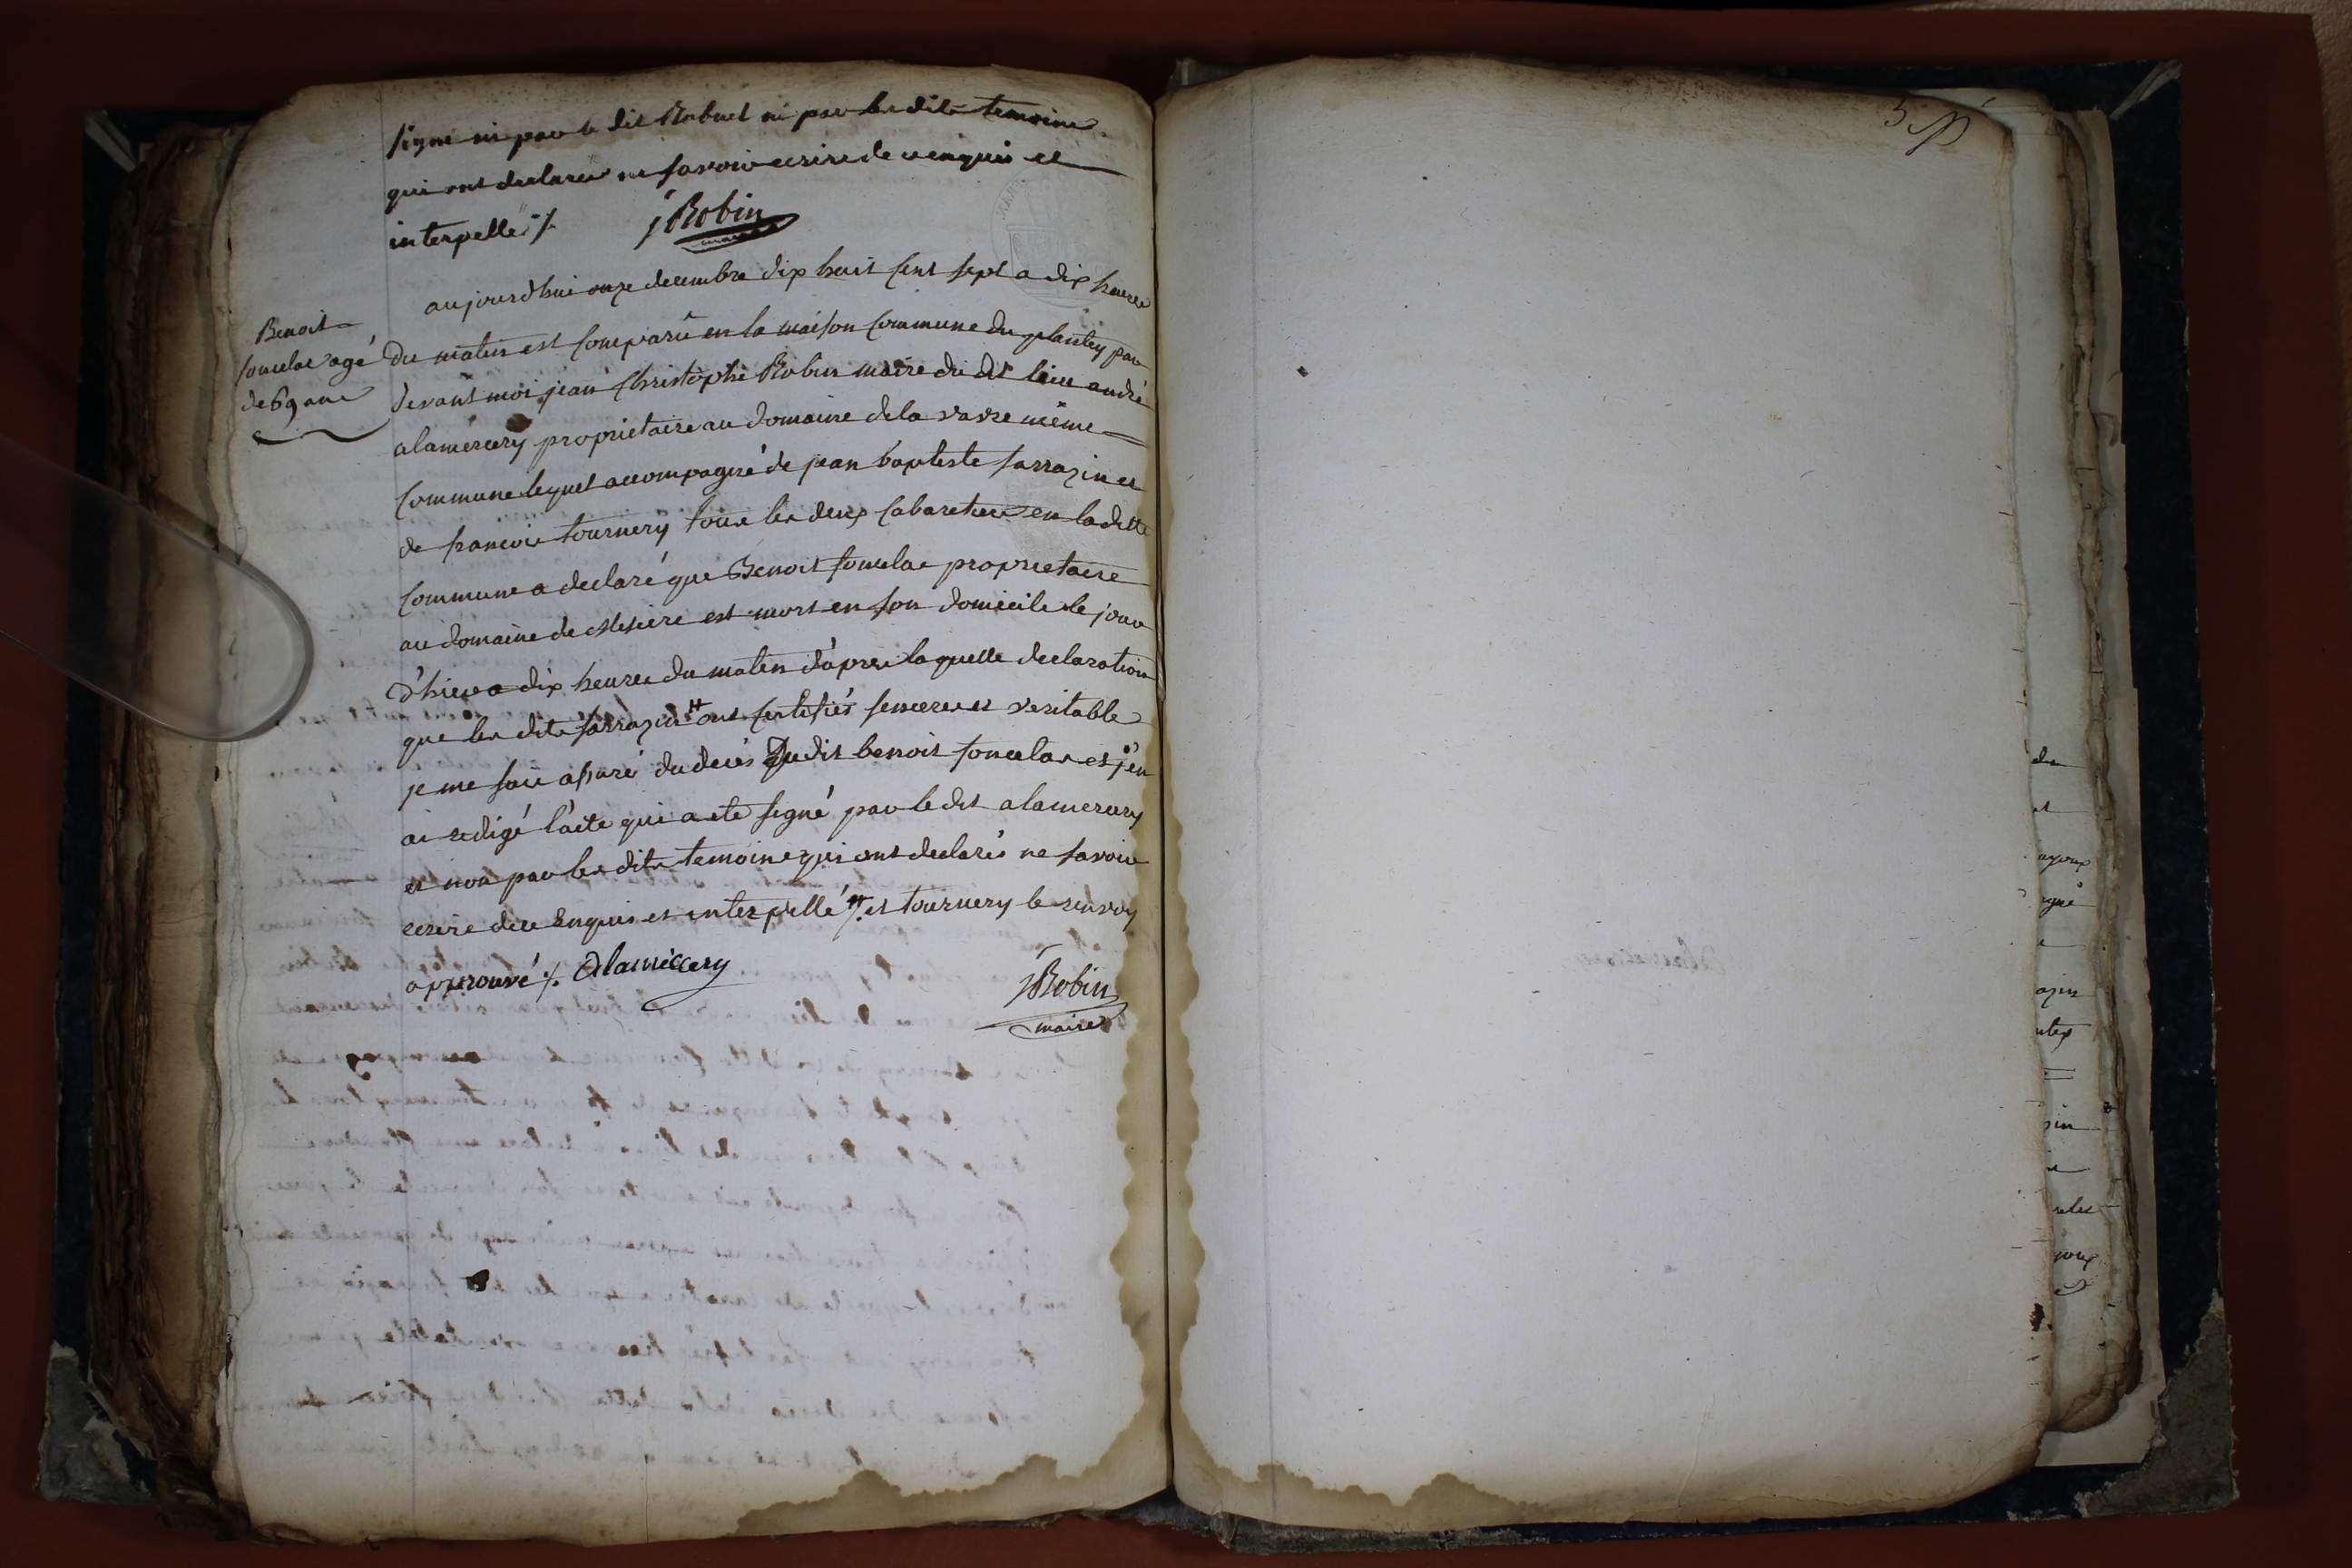 signé ni par le dit Robert ni par les dits temoins
qui ont declarés ne savoir ecrire de ce enquis et
interpellé ./.
jRobin
maire
Benoit
foncelas agé
de 69 ans
aujourdhui onze decembre dix huit cent sept a dix heures
du matin est comparû en la maison commune du plantey par
devant moi jean christophe Robin maire du dit lieu andré
alamercery proprietaire au domaine dela vavre même
commune lequel accompagné de jean baptiste sarrazin et
de francois tournery tous les deux cabaretiers en laditte
commune a declaré que Benoit foncelas proprietaire
au domaine de est mort en son domicile le jour
d'hier a dix heures du matin d'apres laquelle declaration
que les dits sarrazin # ont certifiés sinceres et veritable
je me suis assuré du decés dudit benoit foncelas et j'en
ai redigé l'acte qui a eté signé par le dit alamercery
et non par les dits temoins qui ont declarés ne savoir
ecrire de ce enquis et interpellé # ./. et tournery le renvoy
approuvé ./. Alamercery
jRobin
maire
5
de
et